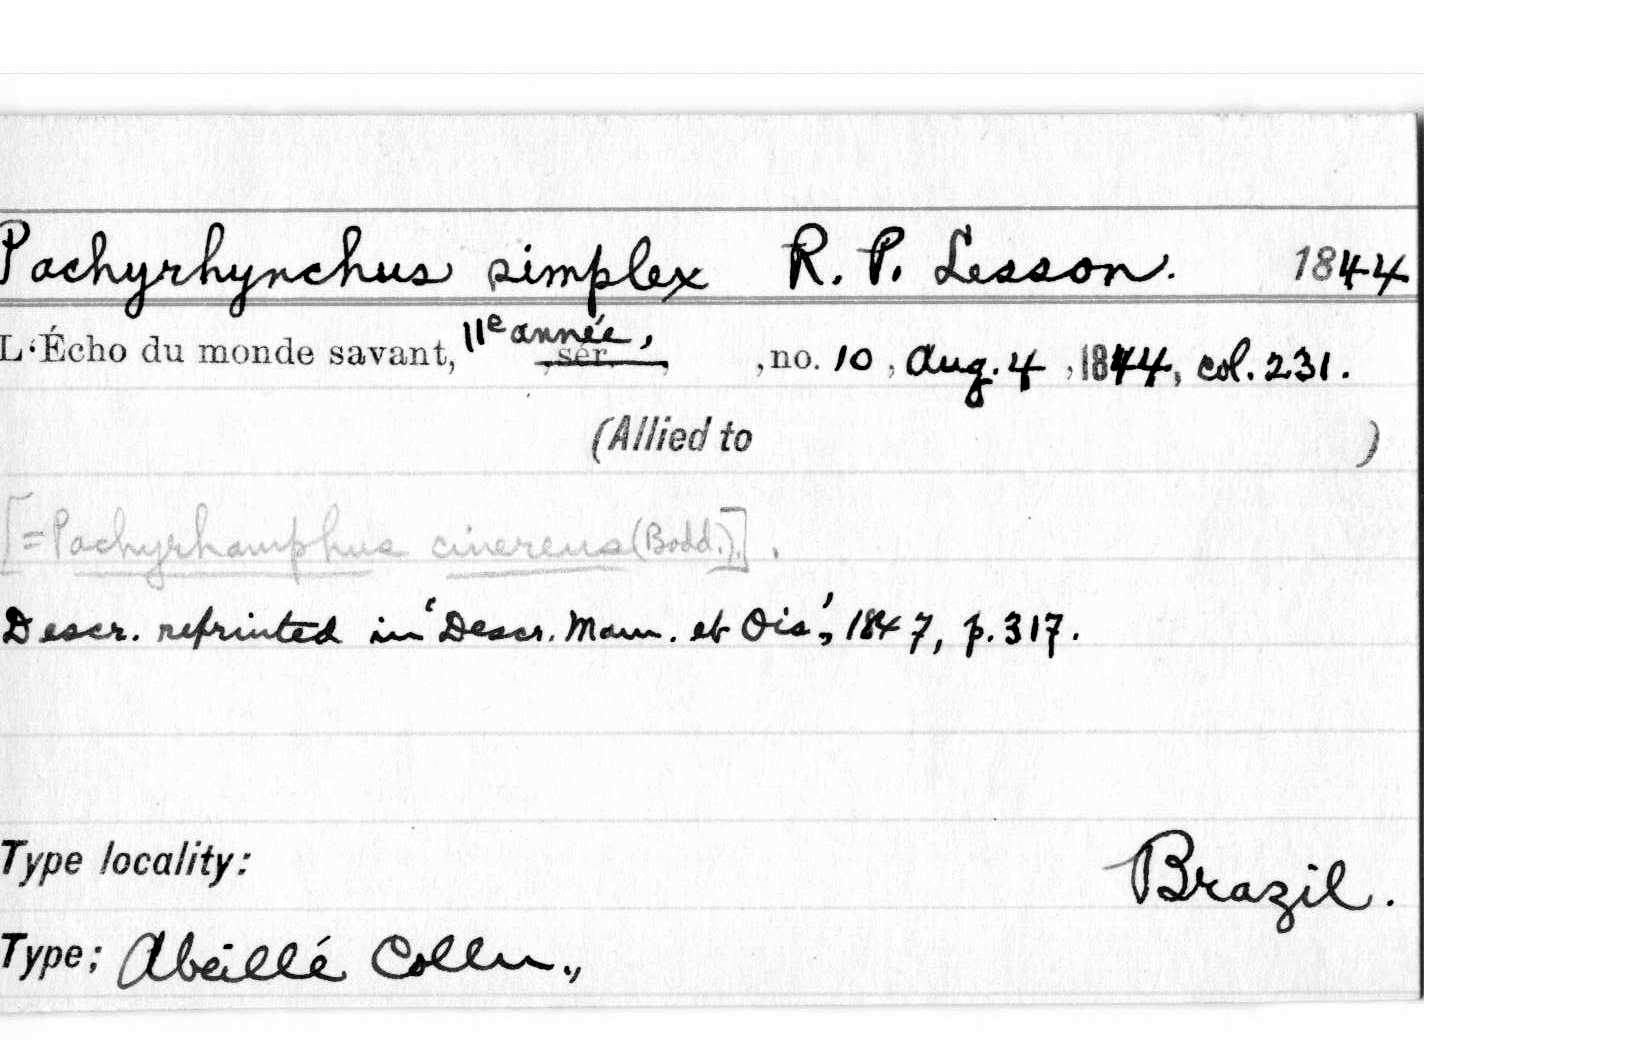 Pachyrhynchus simplex R. P. Lesson. 1844
L'Écho du monde savant, 11e année, , sér. , , no. 10 , Aug. 4 , 1844, col. 231.
(Allied to )
[=Pachyrhamphus cinereus (Bodd.)].
Descr. reprinted in 'Descr. Mam. et Ois', 1847, p. 317.
Type locality: Brazil.
Type; Abeillé Colln.,